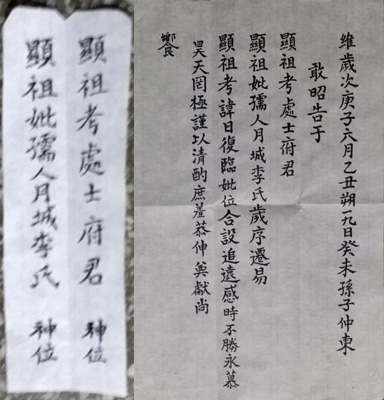 維歲次庚子六月乙丑朔十九日癸未孫子仲東
敢昭告于
顯祖考處士府君
顯祖妣孺人月城李氏歲序遷易
顯祖考諱日復臨妣位合設追遠感時不勝永慕
昊天罔極謹以清酌庶羞恭伸奠獻尚
饗
顯祖考處士府君 神位
顯祖妣孺人月城李氏 神位